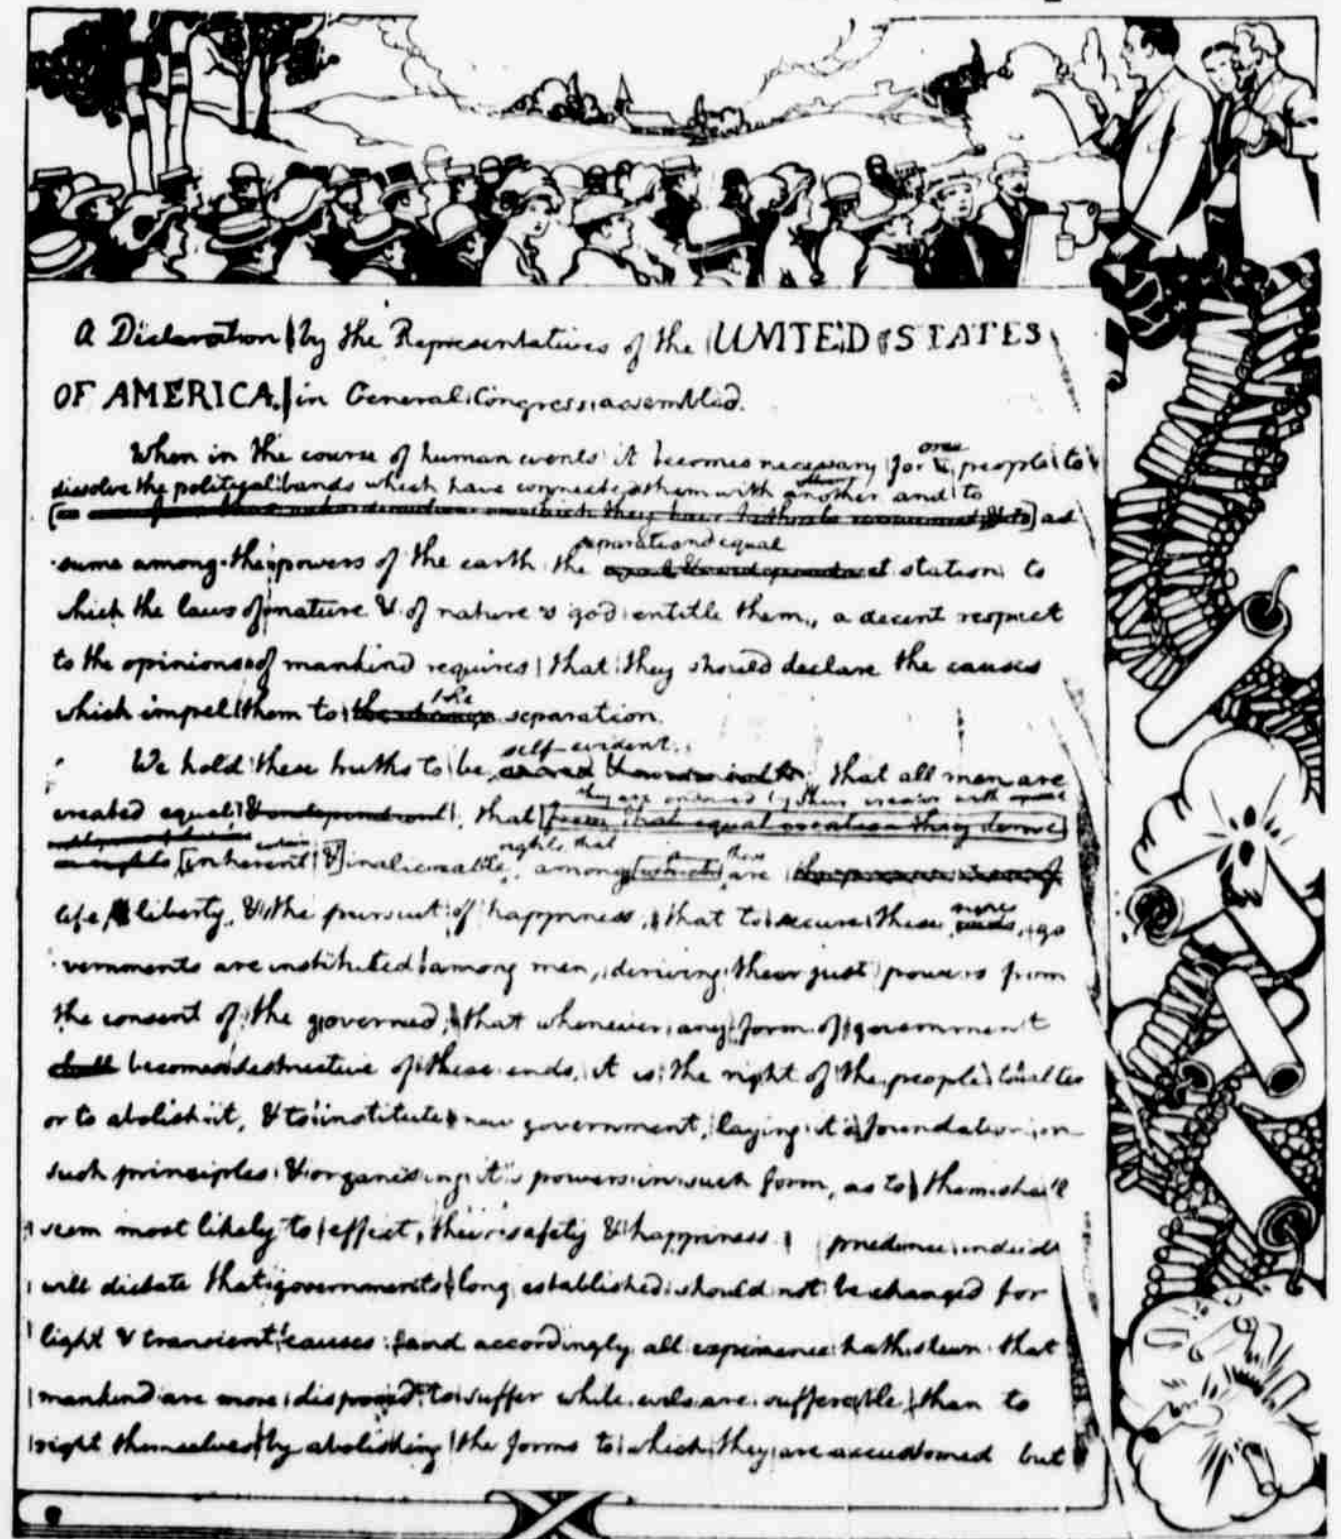 A Declaration by the Representatives of the UNITED STATES
OF AMERICA. in General Congress assembled.
When in the course of human events it becomes necessary for one people to
dissolve the political bands which have connected them with another and to
as
separate and equal
sume among the powers of the earth the station to
which the laws of nature & of nature's god entitle them, a decent respect
to the opinions of mankind requires that they should declare the causes
the
which impel them to the change separation.
self-evident.
We hold these truths to be that all men are
they are endowed by their creator with
created equal & independent, that from that equal creation they derive
rights that
[inherent &] inalienable, among [which] are
life liberty, & the pursuit of happiness, that to secure these ends, go
vernments are instituted among men, deriving their just powers from
the consent of the governed, that whenever any form of government
shall becomes destructive of these ends, it is the right of the people to alter
or to abolish it, & to institute new government, laying it's foundation on
such principles & organising it's powers in such form, as to them shall
seem most likely to effect their safety & happiness. prudence indeed
will dictate that governments long established should not be changed for
light & transient causes and accordingly all experience hath shewn that
mankind are more disposed to suffer while evils are sufferable than to
right themselves by abolishing the forms to which they are accustomed but